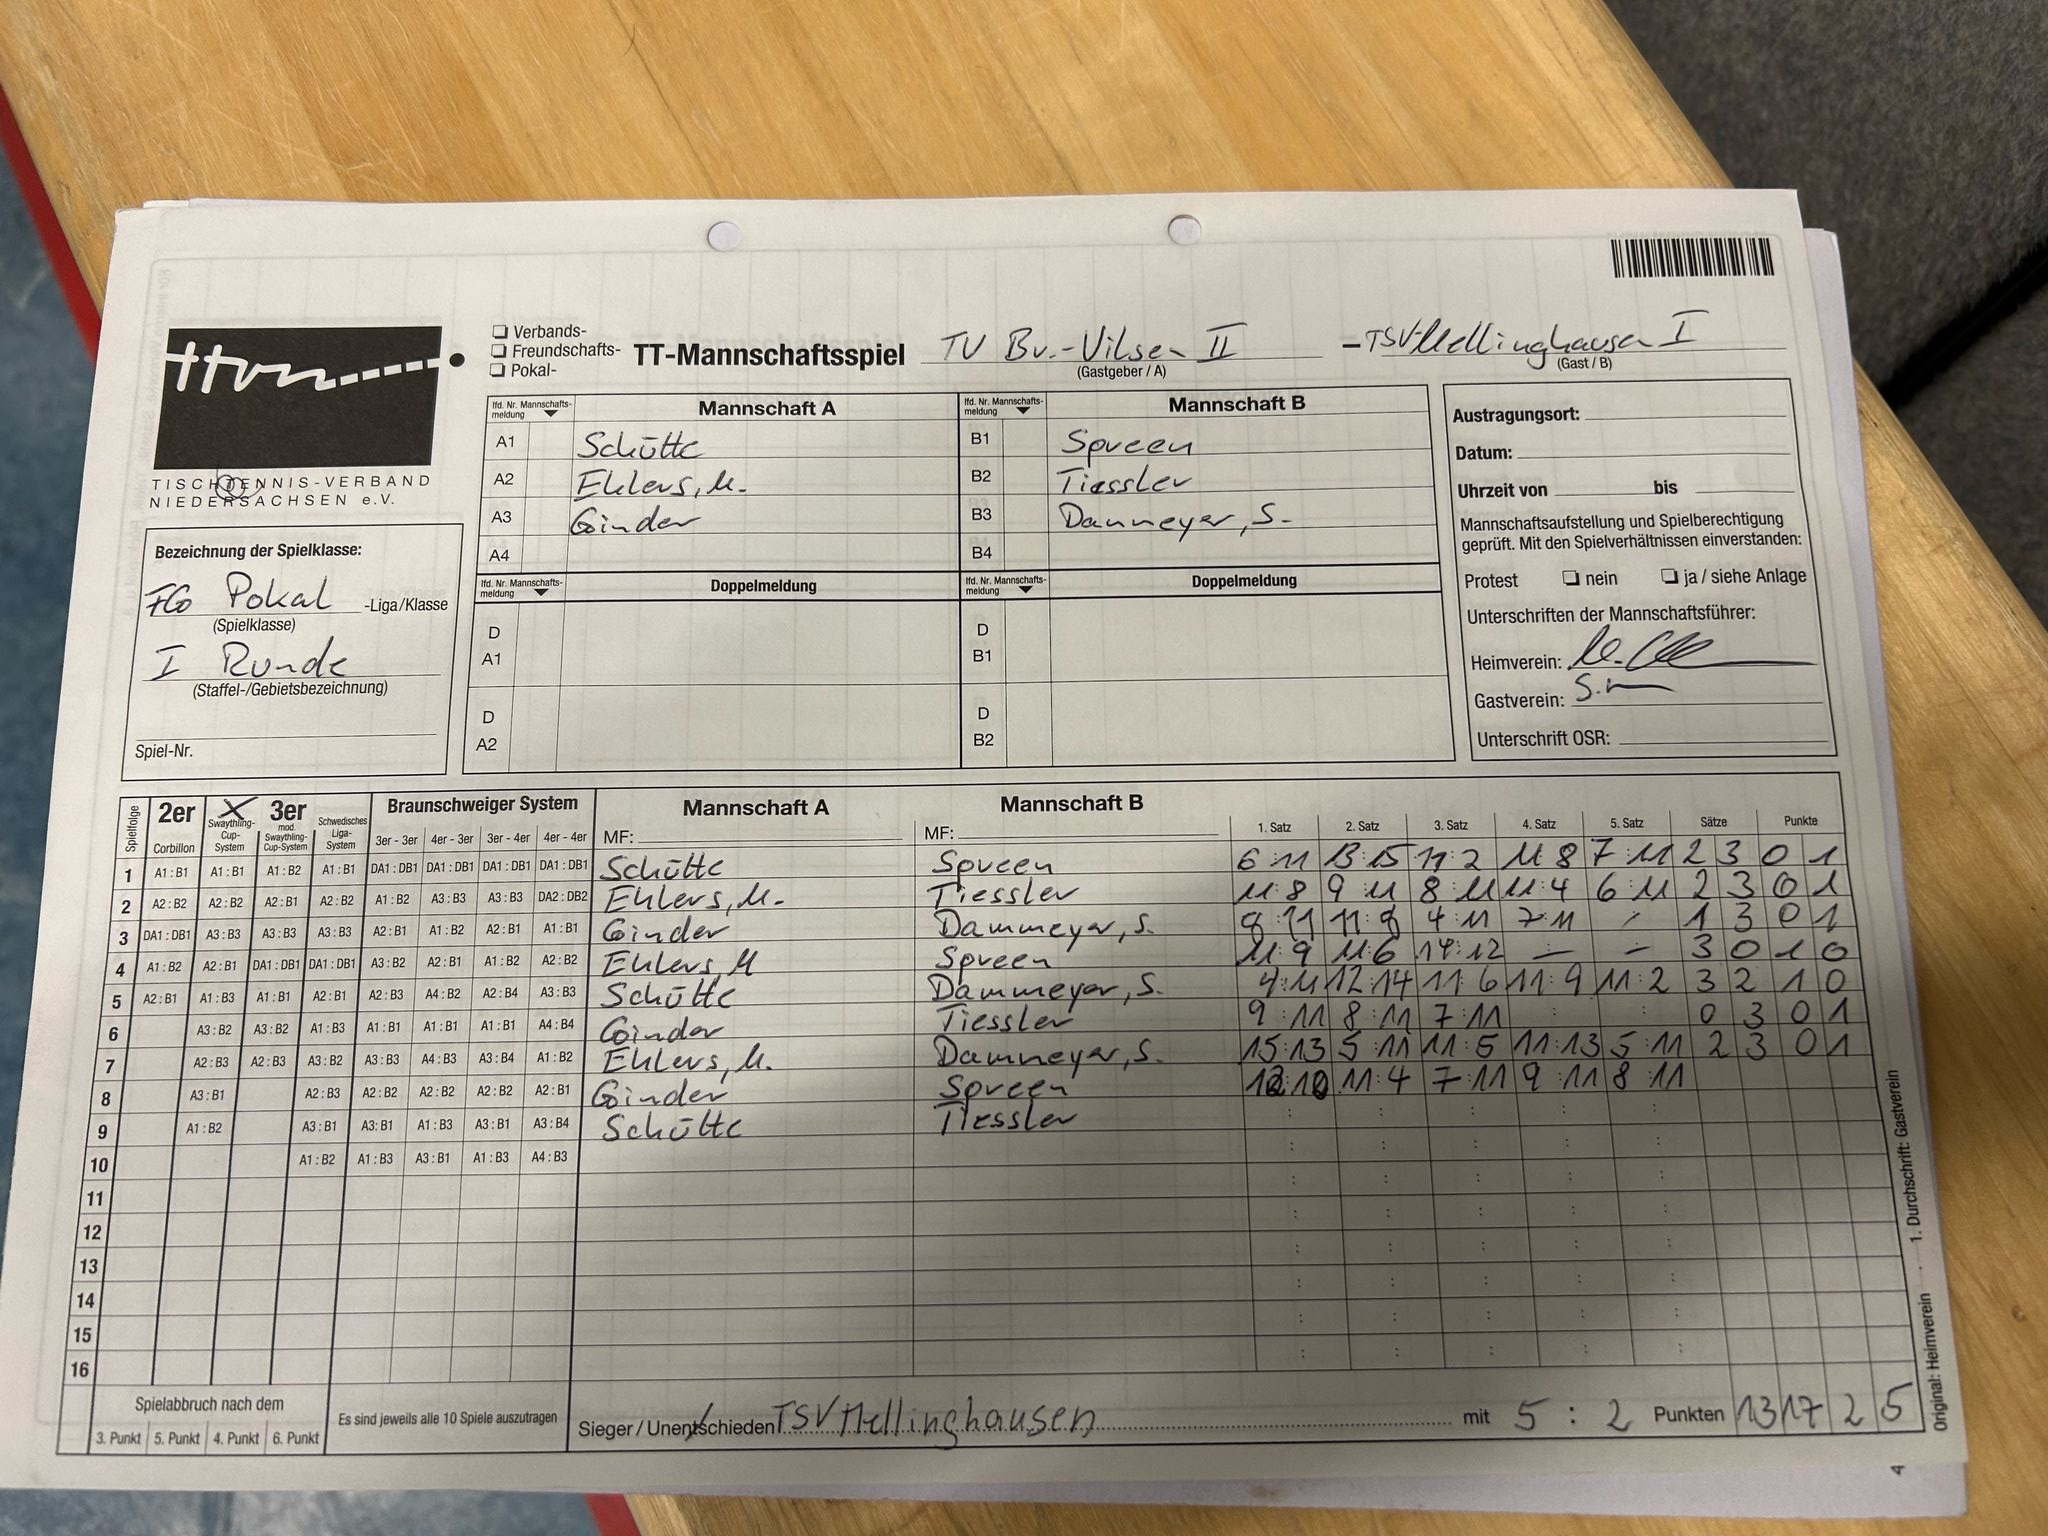 ttvn
TISCHTENNIS-VERBAND
NIEDERSACHSEN e.V.
❏ Verbands-
❏ Freundschafts-
❏ Pokal-
TT-Mannschaftsspiel TV Br.-Vilsen II – TSV Mellinghausen I
(Gastgeber / A) (Gast / B)
lfd. Nr. Mannschafts-meldung Mannschaft A lfd. Nr. Mannschafts-meldung Mannschaft B
A1 Schütte B1 Spreen
A2 Ehlers, M. B2 Tiessler
A3 Ginder B3 Dammeyer, S.
A4 B4
lfd. Nr. Mannschafts-meldung Doppelmeldung lfd. Nr. Mannschafts-meldung Doppelmeldung
D A1 D B1
D A2 D B2
Bezeichnung der Spielklasse:
Pokal -Liga/Klasse
(Spielklasse)
I Runde
(Staffel-/Gebietsbezeichnung)
Spiel-Nr.
Austragungsort:
Datum:
Uhrzeit von bis
Mannschaftsaufstellung und Spielberechtigung
geprüft. Mit den Spielverhältnissen einverstanden:
Protest ❏ nein ❏ ja / siehe Anlage
Unterschriften der Mannschaftsführer:
Heimverein:
Gastverein:
Unterschrift OSR:
Spielfolge 2er X 3er Braunschweiger System Mannschaft A Mannschaft B
Corbillon Swaythling-Cup-System mod. Swaythling-Cup-System Schwedisches Liga-System 3er - 3er 4er - 3er 3er - 4er 4er - 4er MF: MF: 1. Satz 2. Satz 3. Satz 4. Satz 5. Satz Sätze Punkte
1 A1 : B1 A1 : B1 A1 : B2 A1 : B1 DA1 : DB1 DA1 : DB1 DA1 : DB1 DA1 : DB1 Schütte Spreen 6:11 13:15 11:2 11:8 7:11 2 3 0 1
2 A2 : B2 A2 : B2 A2 : B1 A2 : B2 A1 : B2 A3 : B3 A3 : B3 DA2 : DB2 Ehlers, M. Tiessler 11:8 9:11 8:11 11:4 6:11 2 3 0 1
3 DA1 : DB1 A3 : B3 A3 : B3 A3 : B3 A2 : B1 A1 : B2 A2 : B1 A1 : B1 Ginder Dammeyer, S. 8:11 11:8 4:11 7:11 1 3 0 1
4 A1 : B2 A2 : B1 DA1 : DB1 DA1 : DB1 A3 : B2 A2 : B1 A1 : B2 A2 : B2 Ehlers, M Spreen 11:9 11:6 14:12 – – 3 0 1 0
5 A2 : B1 A1 : B3 A1 : B1 A2 : B1 A2 : B3 A4 : B2 A2 : B4 A3 : B3 Schütte Dammeyer, S. 9:11 12:14 11:6 11:9 11:2 3 2 1 0
6 A3 : B2 A3 : B2 A1 : B3 A1 : B1 A1 : B1 A1 : B1 A4 : B4 Ginder Tiessler 9:11 8:11 7:11 : : 0 3 0 1
7 A2 : B3 A2 : B3 A3 : B2 A3 : B3 A4 : B3 A3 : B4 A1 : B2 Ehlers, M. Dammeyer, S. 15:13 5:11 11:5 11:13 5:11 2 3 0 1
8 A3 : B1 A2 : B3 A2 : B2 A2 : B2 A2 : B2 A2 : B1 Ginder Spreen 12:10 11:4 7:11 9:11 8:11
9 A1 : B2 A3 : B1 A3 : B1 A1 : B3 A3 : B1 A3 : B4 Schütte Tiessler
10 A1 : B2 A1 : B3 A3 : B1 A1 : B3 A4 : B3
11
12
13
14
15
16
Spielabbruch nach dem
3. Punkt 5. Punkt 4. Punkt 6. Punkt
Es sind jeweils alle 10 Spiele auszutragen
Sieger / Unentschieden TSV Mellinghausen mit 5 : 2 Punkten 13 17 2 5
Original: Heimverein · 1. Durchschrift: Gastverein
4